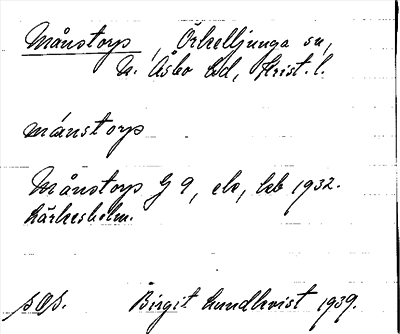 Månstorp, Örkelljunga sn,
N. Åsbo hd, Krist. l.
månstorp
Månstorps G 9, ek, 1932.
Kärkesholm.
Birgit Lundkvist 1939.